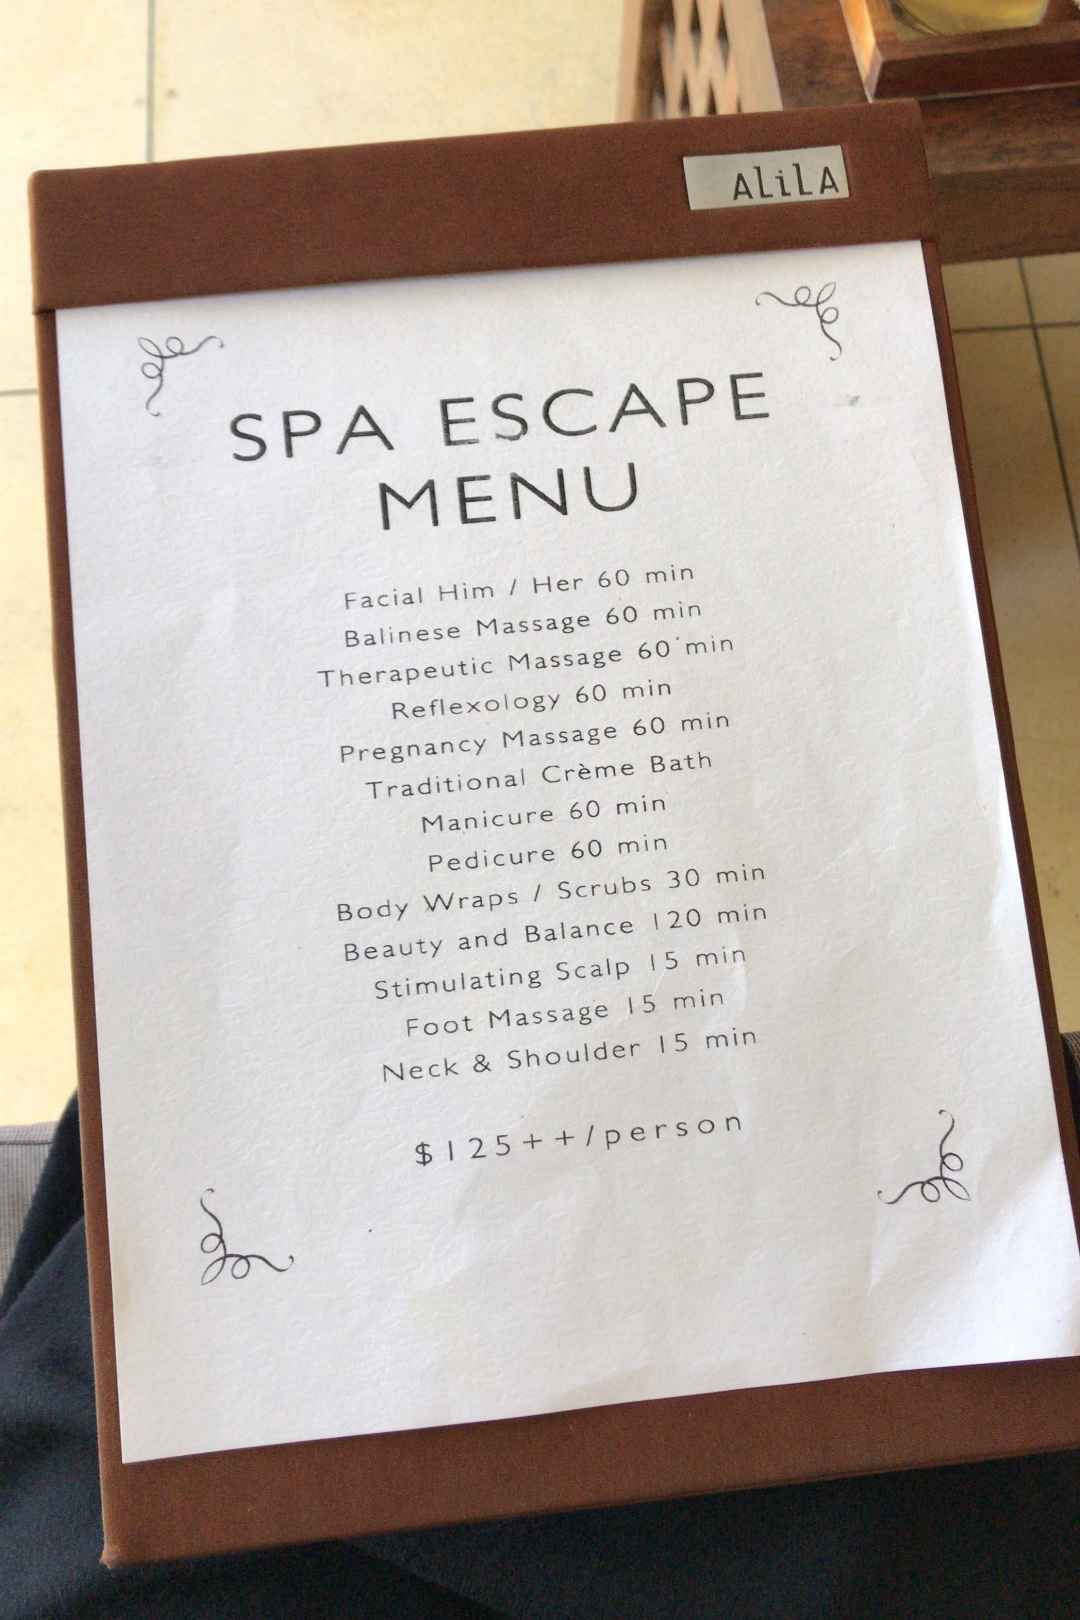 ALiLA
SPA ESCAPE
MENU
Facial Him / Her 60 min
Balinese Massage 60 min
Therapeutic Massage 60 min
Reflexology 60 min
Pregnancy Massage 60 min
Traditional Crème Bath
Manicure 60 min
Pedicure 60 min
Body Wraps / Scrubs 30 min
Beauty and Balance 120 min
Stimulating Scalp 15 min
Foot Massage 15 min
Neck & Shoulder 15 min
$125++/person